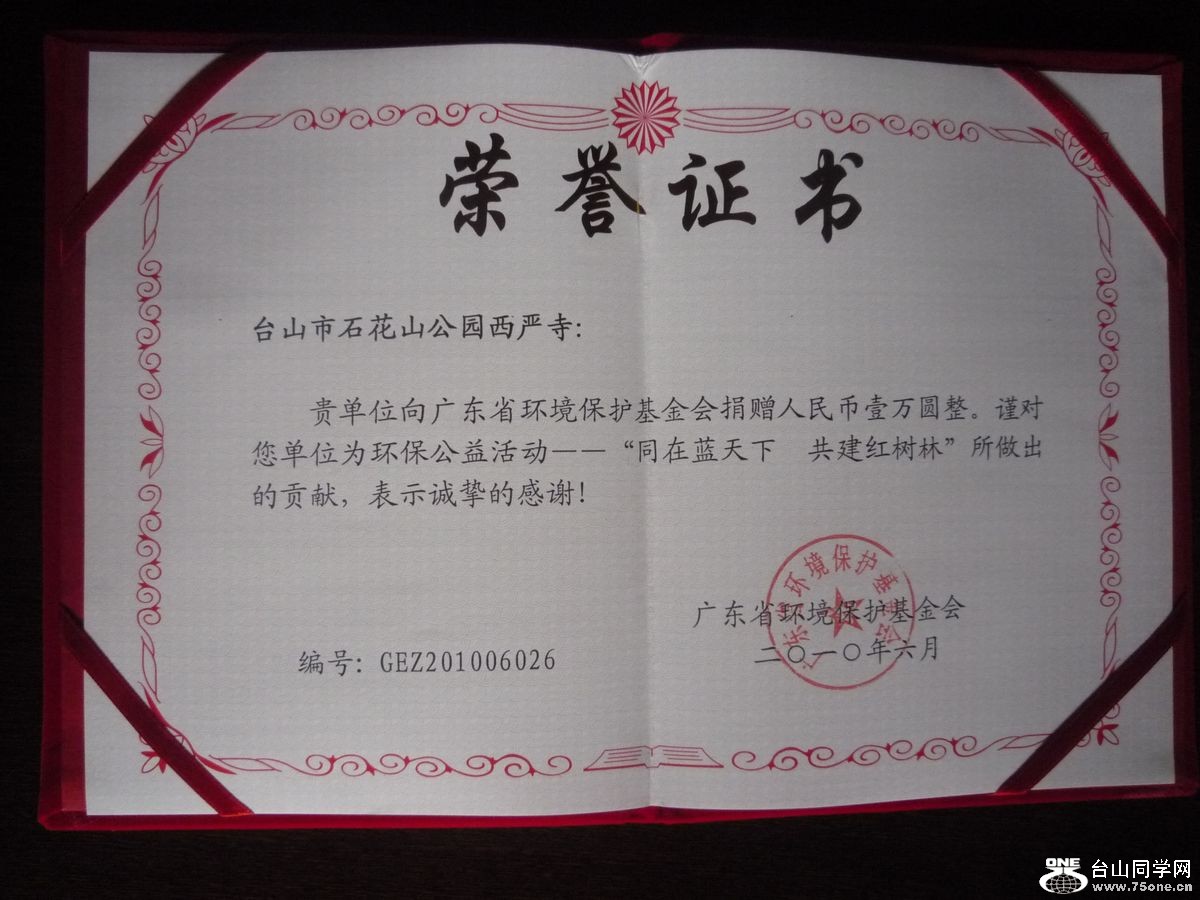 荣誉证书
台山市石花山公园西严寺：
贵单位向广东省环境保护基金会捐赠人民币壹万圆整。谨对
您单位为环保公益活动——“同在蓝天下　共建红树林”所做出
的贡献，表示诚挚的感谢！
广东省环境保护基金会
广东省环境保护基金会
二〇一〇年六月
编号：GEZ201006026
ONE
台山同学网
www.75one.cn